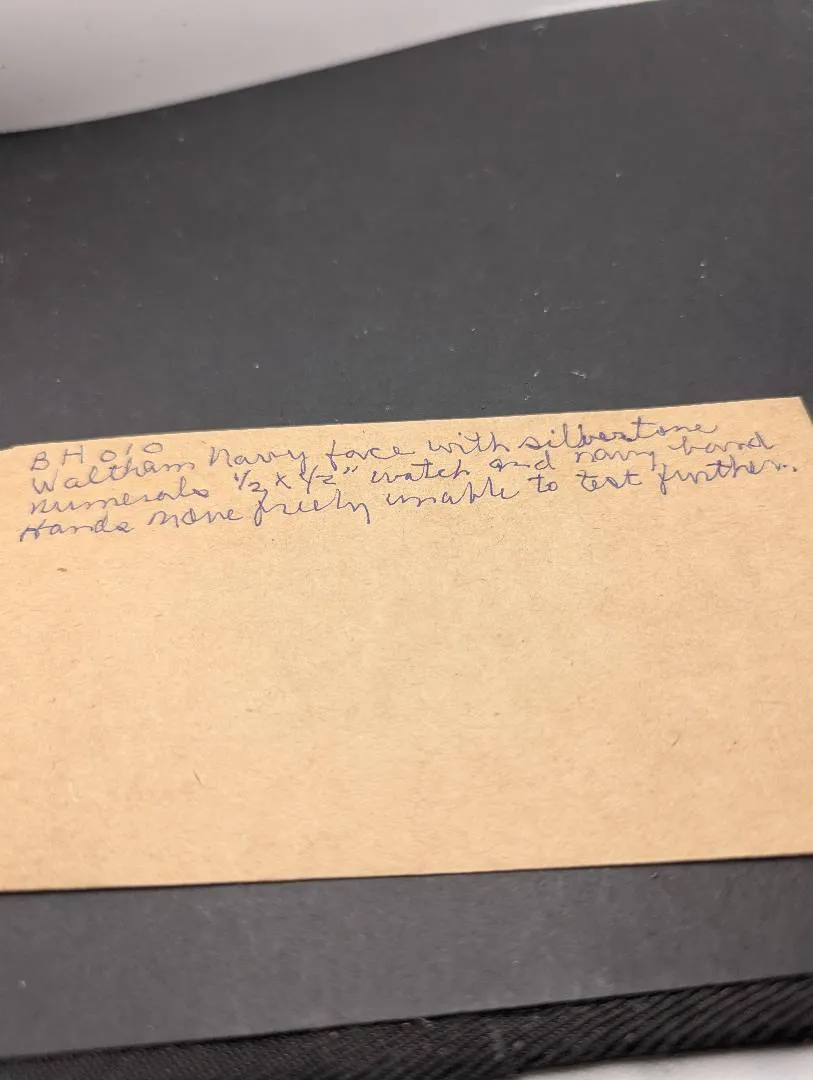 BH010
Waltham Navy face with silvertone
numerals 1/2 x 1/2" watch and navy band
Hands move freely unable to test further.